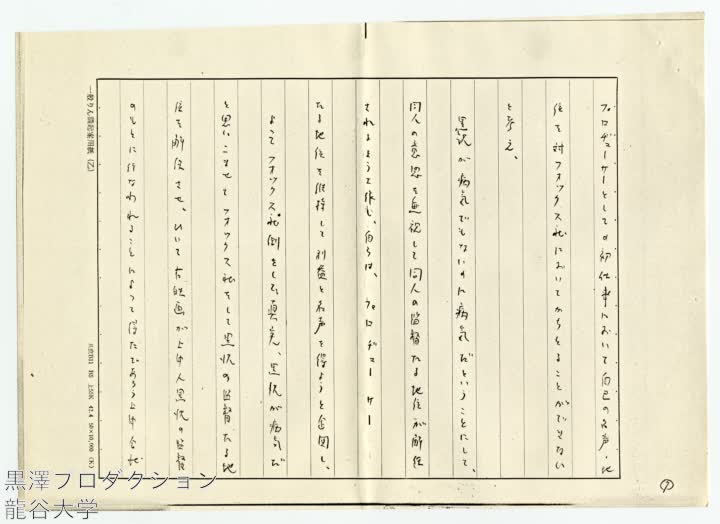 プロデューサーとしての初仕事において自己の名声・地
位を対フオックス社においてからとることができない
と考え、
黒沢が病気でもないのに病気だということにして、
同人の意思を無視して同人の監督たる地位が解任
されるよう工作し、自らは、プロデューサー
たる地位を維持して利益と名声を得ようと企図し、
よってフオックス社側をして、真実、黒沢が病気だ
と思いこませてフオックス社をして黒沢の監督たる地
位を解任させ、ひいて右映画が上申人黒沢の監督
のもとに行なわれることによって得たであろう上申会社
一般りん議起案用紙(乙)
黒澤プロダクション
龍谷大学